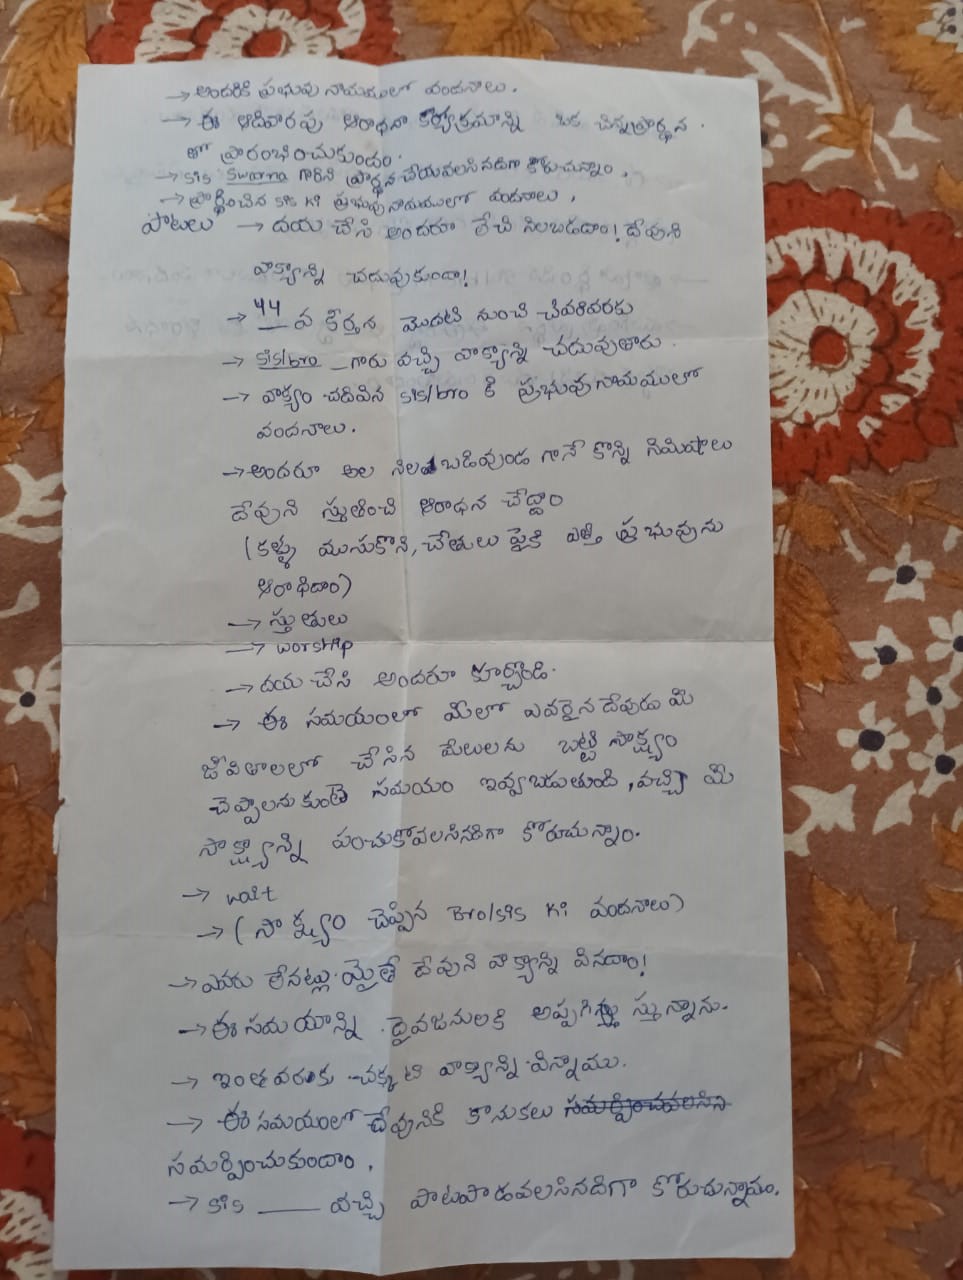 → అందరికి ప్రభువు నామములో వందనాలు.
→ ఈ ఆదివారపు ఆరాధనా కార్యక్రమాన్ని ఒక చిన్న ప్రార్థన
తో ప్రారంభించుకుందాం.
→ sis Swarna గారిని ప్రార్థన చేయవలసినదిగా కోరుచున్నాం.
→ ప్రార్థించిన sis ki ప్రభువు నామములో వందనాలు.
పాటలు → దయ చేసి అందరూ లేచి నిలబడదాం! దేవుని
వాక్యాన్ని చదువుకుందా!
→ 44 వ కీర్తన మొదటి నుంచి చివరివరకు
→ sis/bro __ గారు వచ్చి వాక్యాన్ని చదువుతారు.
→ వాక్యం చదివిన sis/bro కి ప్రభువు నామములో
వందనాలు.
→ అందరూ అల నిలబడివుండ గానే కొన్ని నిమిషాలు
దేవుని స్తుతించి ఆరాధన చేద్దాం
(కళ్ళు మూసుకొని, చేతులు పైకి ఎత్తి ప్రభువును
ఆరాధిదాం)
→ స్తుతులు
→ worship
→ దయ చేసి అందరూ కూర్చోండి.
→ ఈ సమయంలో మీలో ఎవరైన దేవుడు మీ
జీవితాలలో చేసిన మేలులను బట్టి సాక్ష్యం
చెప్పాలనుకుంటే సమయం ఇవ్వబడుతుంది, వచ్చి మీ
సాక్ష్యాన్ని పంచుకోవలసినదిగా కోరుచున్నాం.
→ wait
→ (సాక్ష్యం చెప్పిన Bro/sis ki వందనాలు)
→ ఎవరు లేనట్లు మైతే దేవుని వాక్యాన్ని విందాం!
→ ఈ సమయాన్ని దైవజనులకి అప్పగిస్తున్నాను.
→ ఇంత వరకు చక్కటి వాక్యాన్ని విన్నాము.
→ ఈ సమయంలో దేవునికి కానుకలు సమర్పించవలసిన
సమర్పించుకుందాం.
→ sis ____ వచ్చి పాటపాడవలసినదిగా కోరుచున్నాము.